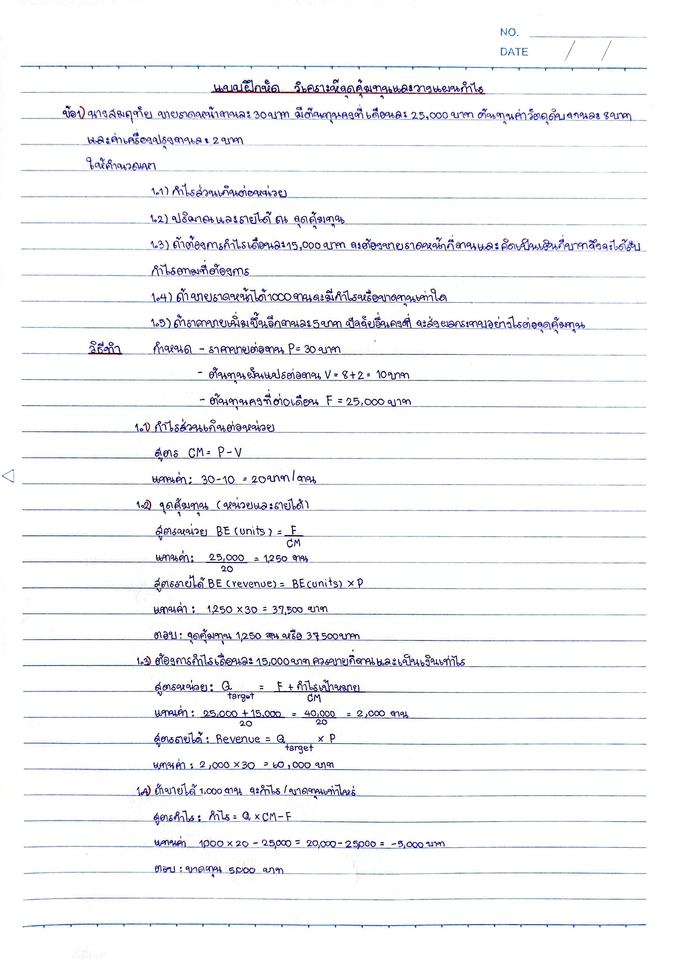 NO.
DATE / /
แบบฝึกหัด วิเคราะห์จุดคุ้มทุนและวางแผนกำไร
ข้อ1) นางสมฤทัย ขายราดหน้าจานละ 30 บาท มีต้นทุนคงที่เดือนละ 25,000 บาท ต้นทุนค่าวัตถุดิบจานละ 8 บาท
และค่าเครื่องปรุงจานละ 2 บาท
ให้คำนวณหา
1.1) กำไรส่วนเกินต่อหน่วย
1.2) ปริมาณและรายได้ ณ จุดคุ้มทุน
1.3) ถ้าต้องการกำไรเดือนละ 15,000 บาท จะต้องขายราดหน้ากี่จานและคิดเป็นเงินกี่บาทถึงจะได้รับ
กำไรตามที่ต้องการ
1.4) ถ้าขายราดหน้าได้ 1000 จานจะมีกำไรหรือขาดทุนเท่าใด
1.5) ถ้าราคาขายเพิ่มขึ้นอีกจานละ 5 บาท ปัจจัยอื่นคงที่ จะส่งผลกระทบอย่างไรต่อจุดคุ้มทุน
วิธีทำ กำหนด - ราคาขายต่อจาน P = 30 บาท
- ต้นทุนผันแปรต่อจาน V = 8+2 = 10 บาท
- ต้นทุนคงที่ต่อเดือน F = 25,000 บาท
1.1) กำไรส่วนเกินต่อหน่วย
สูตร CM = P - V
แทนค่า: 30-10 = 20 บาท/จาน
1.2) จุดคุ้มทุน (หน่วยและรายได้)
สูตรหน่วย BE (units) = F
CM
แทนค่า: 25,000 = 1,250 จาน
20
สูตรรายได้ BE (revenue) = BE (units) × P
แทนค่า: 1,250 × 30 = 37,500 บาท
ตอบ: จุดคุ้มทุน 1,250 จาน หรือ 37,500 บาท
1.3) ต้องการกำไรเดือนละ 15,000 บาท ควรขายกี่จานและเป็นเงินเท่าไร
สูตรหน่วย: Q target = F + กำไรเป้าหมาย
CM
แทนค่า: 25,000 + 15,000 = 40,000 = 2,000 จาน
20 20
สูตรรายได้: Revenue = Q target × P
แทนค่า: 2,000 × 30 = 60,000 บาท
1.4) ถ้าขายได้ 1,000 จาน จะกำไร/ขาดทุนเท่าไหร่
สูตรกำไร: กำไร = Q × CM - F
แทนค่า 1,000 × 20 - 25,000 = 20,000 - 25,000 = -5,000 บาท
ตอบ: ขาดทุน 5,000 บาท